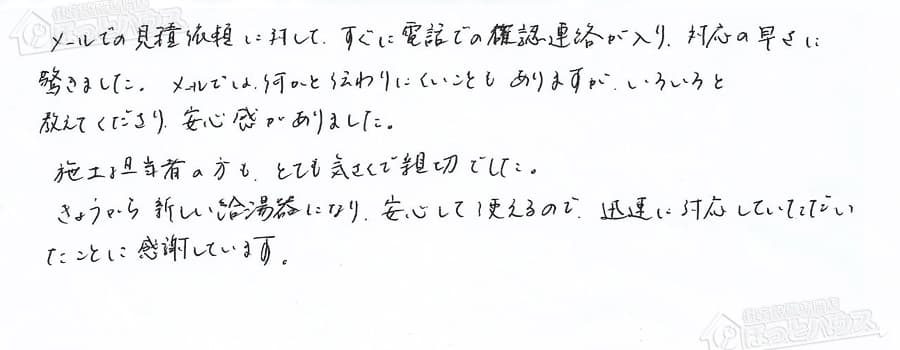 メールでの見積依頼に対して、すぐに電話での確認連絡が入り、対応の早さに
驚きました。メールでは、何かと伝わりにくいこともありますが、いろいろと
教えてくださり、安心感がありました。
施工担当者の方も、とても気さくで親切でした。
きょうから新しい給湯器になり、安心して使えるので、迅速に対応していただい
たことに感謝しています。
住宅設備専門店
ほっとハウス